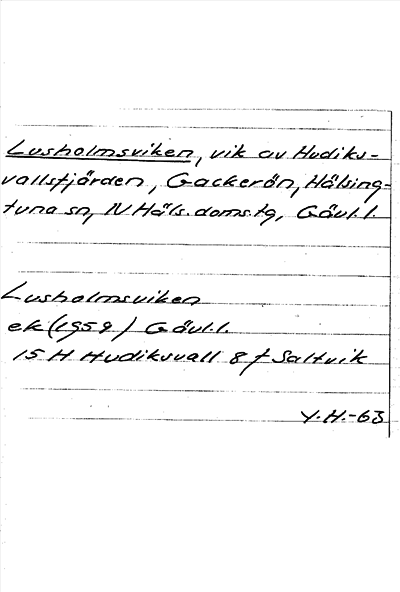 Lusholmsviken, vik av Hudiks-
vallsfjärden, Gackerön, Hälsing-
tuna sn, N Häls. doms.tg, Gävl.l.
Lusholmsviken
ek (1959) Gävl.l.
15 H Hudiksvall 8 f Saltvik
Y.H.-63